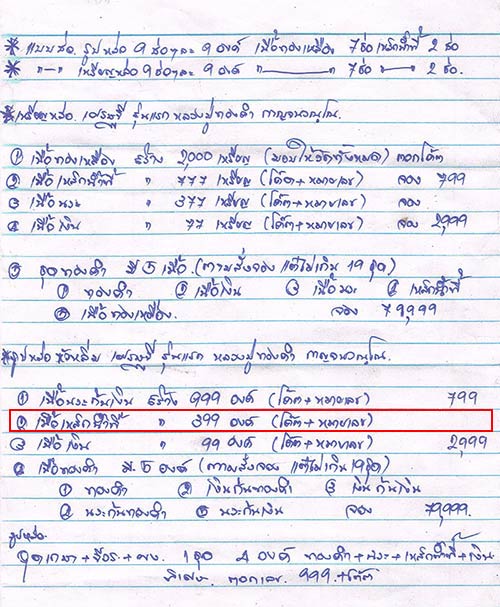 * แบบช่อ รูปหล่อ 9 ช่อๆละ 9 องค์ เนื้อทองเหลือง 7ช่อ เหล็กน้ำพี้ 2 ช่อ
* " เหรียญหล่อ 9 ช่อๆละ 9 องค์ " 7ช่อ " 2 ช่อ.
*เหรียญหล่อ รุ่นแรก หลวงปู่ทองดำ กาญจนวณฺโณ.
① เนื้อทองเหลือง สร้าง 2,000 เหรียญ (มอบให้วัดทั้งหมด) ตอกโค๊ต
② เนื้อเหล็กน้ำพี้ " 777 เหรียญ (โค๊ต+หมายเลข) จอง 799
③ เนื้อนวะ " 377 เหรียญ (โค๊ต+หมายเลข) จอง
④ เนื้อเงิน " 77 เหรียญ (โค๊ต+หมายเลข) จอง 2,999
⑤ ชุดทองคำ มี 5 เนื้อ (ตามสั่งจอง แต่ไม่เกิน 19 ชุด)
① ทองคำ ② เนื้อเงิน ③ เนื้อนวะ ④ เหล็กน้ำพี้
⑤ เนื้อทองเหลือง. จอง 79,999
*รูปหล่อ รุ่นแรก หลวงปู่ทองดำ กาญจนวณฺโณ.
① เนื้อนวะก้นเงิน สร้าง 999 องค์ (โค๊ต+หมายเลข) 799
② เนื้อเหล็กน้ำพี้ " 399 องค์ (โค๊ต+หมายเลข)
③ เนื้อเงิน " 99 องค์ (โค๊ต+หมายเลข) 2,999
④ เนื้อทองคำ มี 5 องค์ (ตามสั่งจอง แต่ไม่เกิน 19ชุด)
① ทองคำ ② เงินก้นทองคำ ③ เงินก้นเงิน
④ นวะก้นทองคำ ⑤ นวะก้นเงิน จอง 79,999.
รูปหล่อ
+ จีวร + 1 ชุด 4 องค์ ทองคำ+นวะ+เหล็กน้ำพี้+เงิน
ตอกเลข 999 +โค๊ต